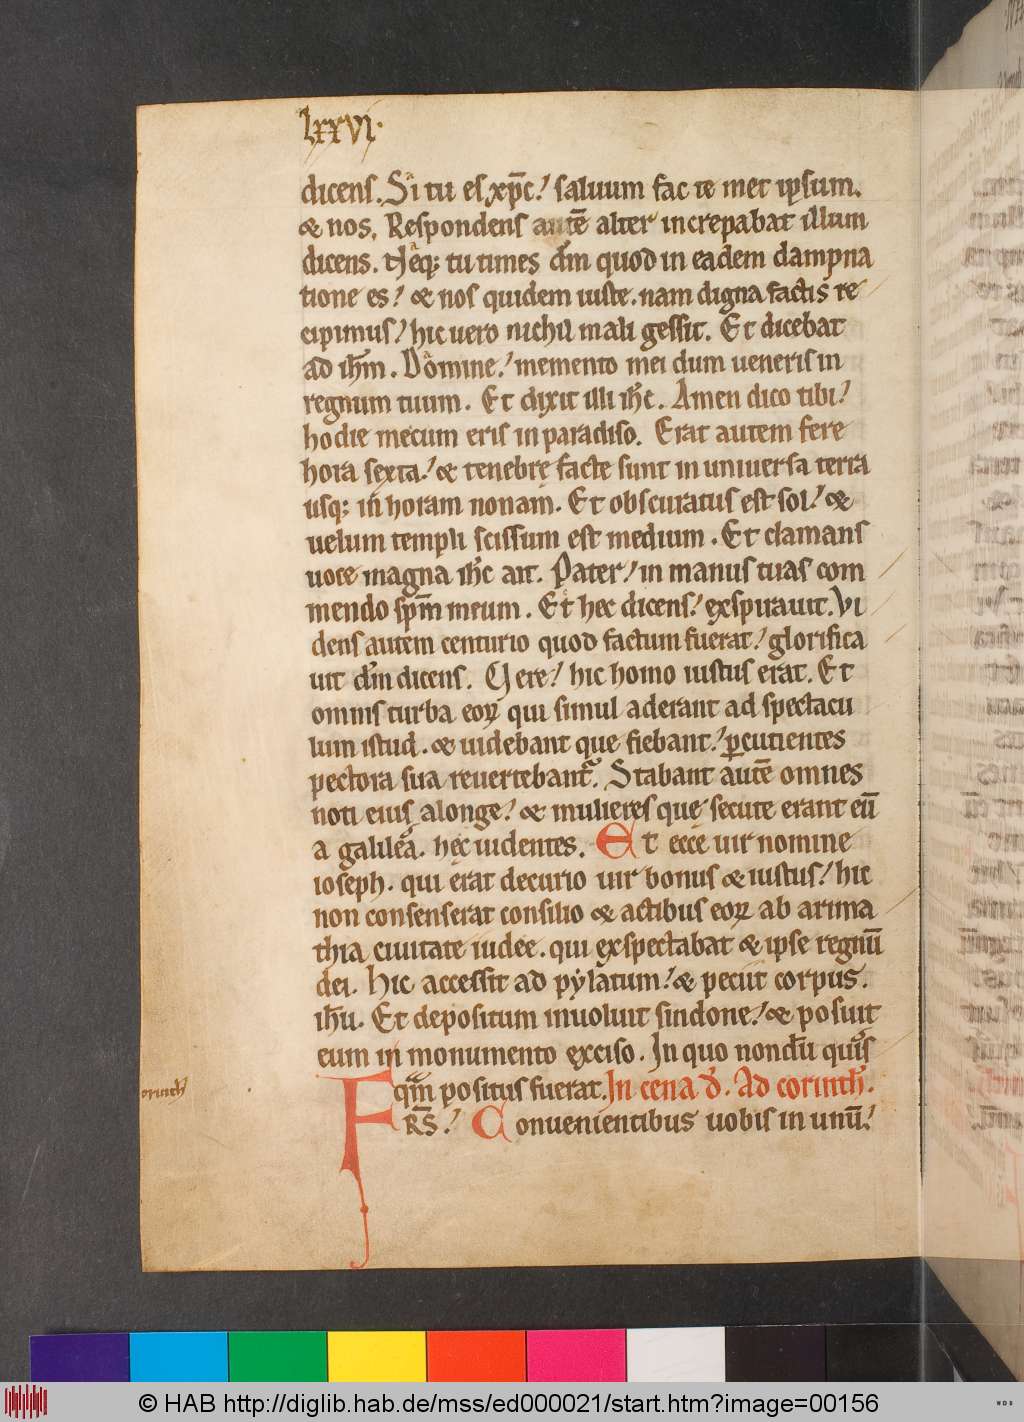 lxxvi.
dicens. Si tu es xp̄c! saluum fac te met ipsum.
& nos. Respondens autē alter increpabat illum
dicens. Neq; tu times dm̄ quod in eadem dampna
tione es! & nos quidem iuste. nam digna factis re
cipimus! hic uero nichil mali gessit. Et dicebat
ad ih̄m. Domine! memento mei dum ueneris in
regnum tuum. Et dixit illi ih̄c. Amen dico tibi!
hodie mecum eris in paradiso. Erat autem fere
hora sexta! & tenebrę facte sunt in uniuersa terra
usq; in horam nonam. Et obscuratus est sol! &
uelum templi scissum est medium. Et clamans
uoce magna ih̄c ait. Pater! in manus tuas com
mendo spm̄ meum. Et hec dicens! exspirauit. Vi
dens autem centurio quod factum fuerat! glorifica
uit dm̄ dicens. Vere! hic homo iustus erat. Et
omnis turba eoꝝ qui simul aderant ad spectacu
lum istud. & uidebant que fiebant! ꝑcutientes
pectora sua reuertebant᷑. Stabant autē omnes
noti eius alonge! & mulieres que secute erant eū
a galilea. hec uidentes. Et ecce uir nomine
ioseph. qui erat decurio uir bonus & iustus! hic
non consenserat consilio & actibus eoꝝ ab arima
thia ciuitate iudee. qui exspectabat & ipse regnū
dei. Hic accessit ad pylatum! & peciit corpus.
ih̄u. Et depositum inuoluit sindone! & posuit
eum in monumento exciso. In quo nondū quis
qm̄ positus fuerat. In cena d̄. Ad corinth̄.
FRS̄! Conuenientibus uobis in unū!
orinth̄
© HAB http://diglib.hab.de/mss/ed000021/start.htm?image=00156